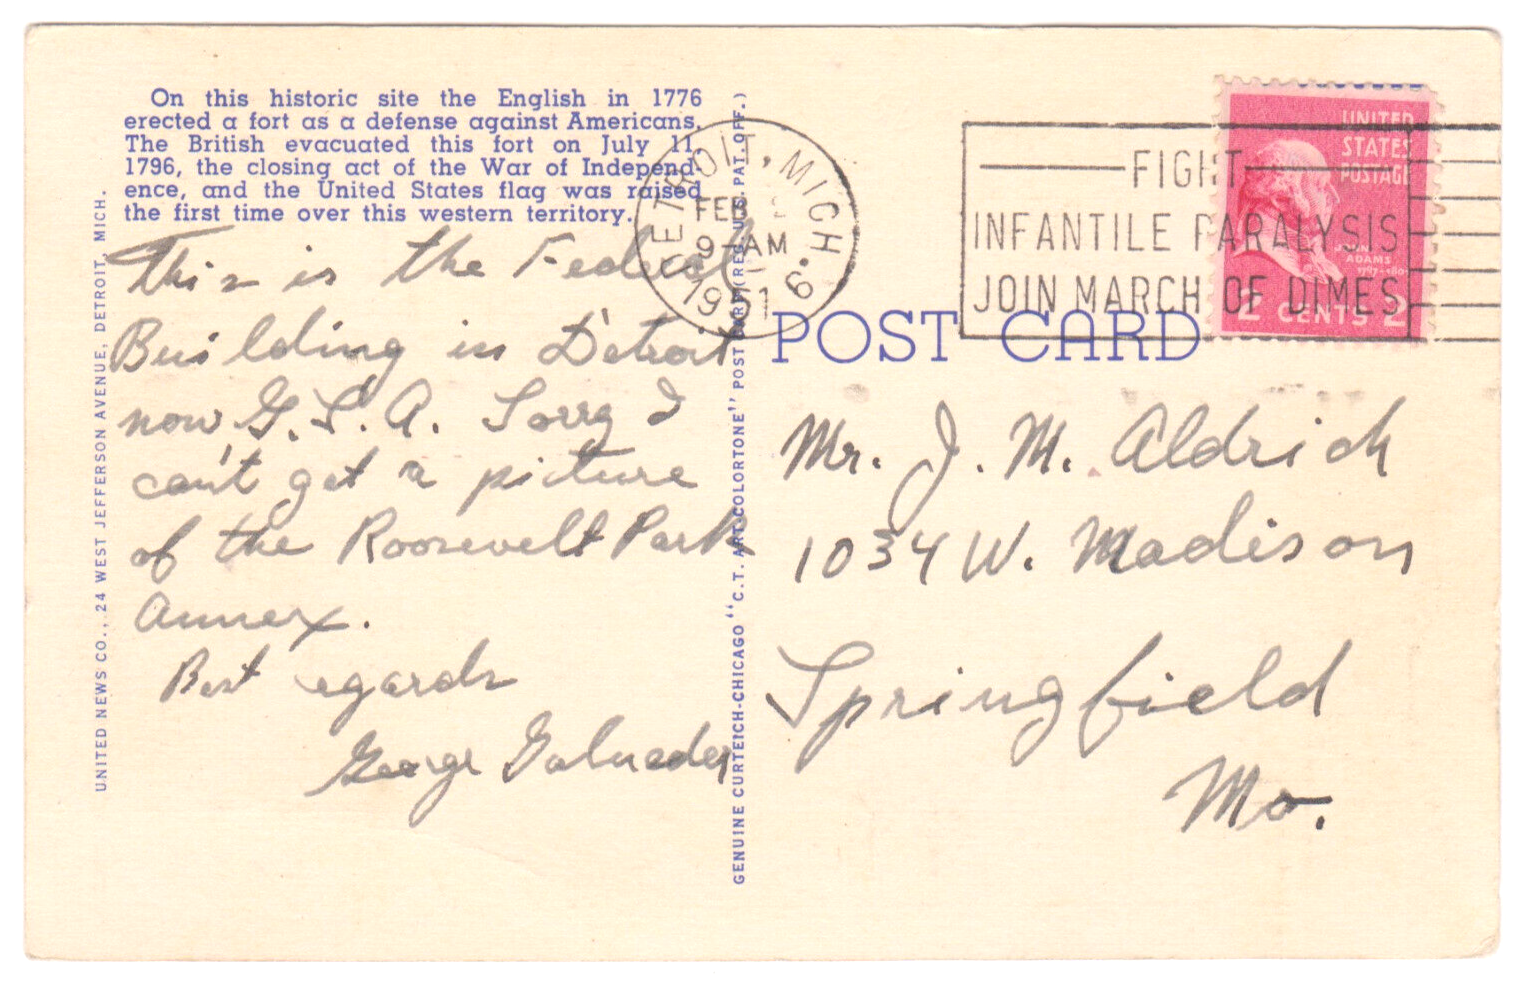 On this historic site the English in 1776
erected a fort as a defense against Americans.
The British evacuated this fort on July 11,
1796, the closing act of the War of Independ-
ence, and the United States flag was raised
the first time over this western territory.
This is the Federal
Building in Detroit
now G.S.A. Sorry I
can't get a picture
of the Roosevelt Park
Annex.
Best regards
George
UNITED NEWS CO., 24 WEST JEFFERSON AVENUE, DETROIT, MICH.
GENUINE CURTEICH-CHICAGO "C.T. ART-COLORTONE" POST CARD (REG. U.S. PAT. OFF.)
DETROIT, MICH. 6
FEB
9-AM
1951
FIGHT
INFANTILE PARALYSIS
JOIN MARCH OF DIMES
UNITED
STATES
POSTAGE
JOHN
ADAMS
2 CENTS 2
POST CARD
Mr. J. M. Aldrich
1034 W. Madison
Springfield
Mo.